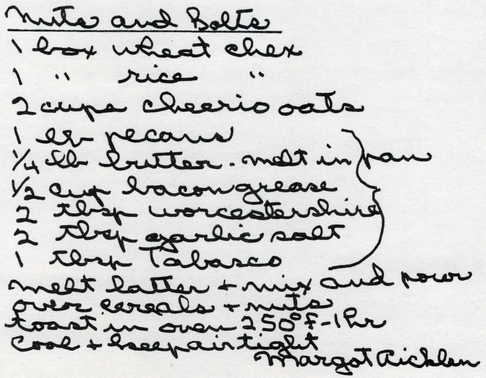 Nuts and Bolts
1 box wheat chex
1 " rice "
2 cups cheerio oats
1 lb pecans
1/4 lb butter. melt in pan
1/2 cup bacon grease
2 tbsp worcestershire
2 tbsp garlic salt
1 tbsp Tabasco
melt latter + mix and pour
over cereals + nuts
toast in oven 250°f-1hr
Cool + keep airtight
Margot Ricklen